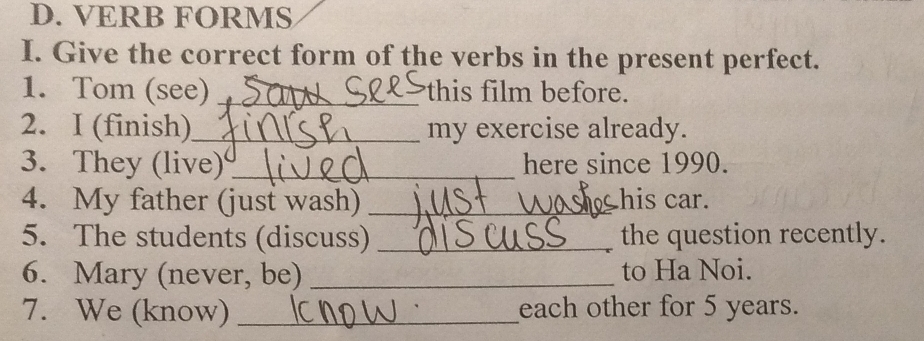 D. VERB FORMS
I. Give the correct form of the verbs in the present perfect.
1. Tom (see) saw sees this film before.
2. I (finish) finish my exercise already.
3. They (live) lived here since 1990.
4. My father (just wash) just washes his car.
5. The students (discuss) discuss the question recently.
6. Mary (never, be) ____________ to Ha Noi.
7. We (know) know each other for 5 years.